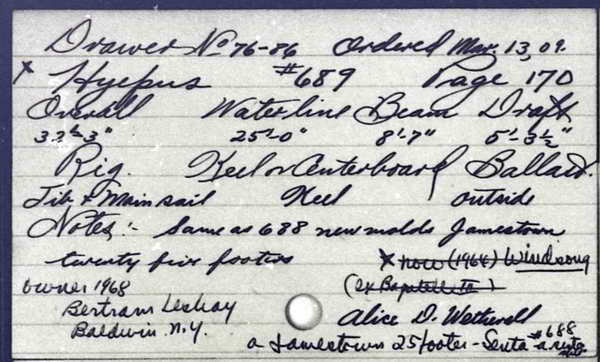 Drawer No 76-86 Ordered Mar. 13, 09.
x Hyepus #689 Page 170
Overall Waterline Beam Draft
37'-3" 25'-0" 8'-7" 5'-3½"
Rig. Keel or Centerboard Ballast.
Jib & Mainsail Keel outside
Notes:- Same as 688 new molds Jamestown
twenty five footers x now (1964) Windsong
owner 1968 (ex
Bertram Leskay Alice D. Wetherell
Baldwin. N.Y. a Jamestown 25 footer - Senta #688